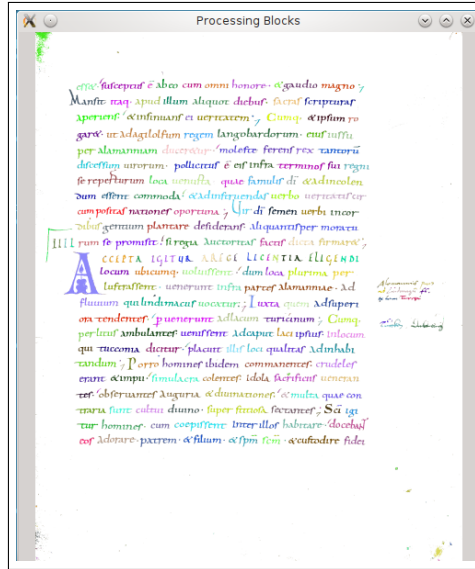 Processing Blocks
esset susceptus ē abeo cum omni honore · & gaudio magno ;
Mansit itaq. apud illum aliquot diebus · sacras scripturas
aperiens & insinuans ei ueritatem ; Cumq. & ipsum ro
gare · ut ad agilolfum regem langobardorum · eius iussu
per alamanniam duceretur · moleste ferens rex tantorū
discessum uirorum · pollicitus ē eis infra terminos sui regni
se reperturum loca uenusta · quae famulis dī & ad incolen
dum essent commoda & ad instruendas uerbo ueritatis cir
cumpositas nationes oportuna ; Qui dī semen uerbi incor
dibus gentium plantare desiderans aliquantisper moratu
IIII rum se promisit si regia auctoritas factis dicta firmare ;
ACCEPTA IGITUR A REGE LICENTIA ELIGENDI
locum ubicumq. uoluissent · dum loca plurima per
lustrassent · uenerunt infra partes alamanniae · ad
fluuium qui lindimacus uocatur ; Iuxta quem ad superi
ora tendentes · peruenerunt ad lacum turicinum ; Cumq.
per litus ambulantes uenissent ad caput laci ipsius · in locum
qui tucconia dicitur · placuit illis loci qualitas ad inhabi
tandum ; Porro homines ibidem commanentes · crudeles
erant & impii simulacra colentes · idola sacrificiis ueneran
tes · obseruantes auguria & diuinationes · & multa quae con
traria sunt cultui diuino · superstitiosa sectantes ; Scī igi
tur homines · cum coepissent inter illos habitare · docebant
eos adorare · patrem · & filium · & spm scm · & custodire fidei